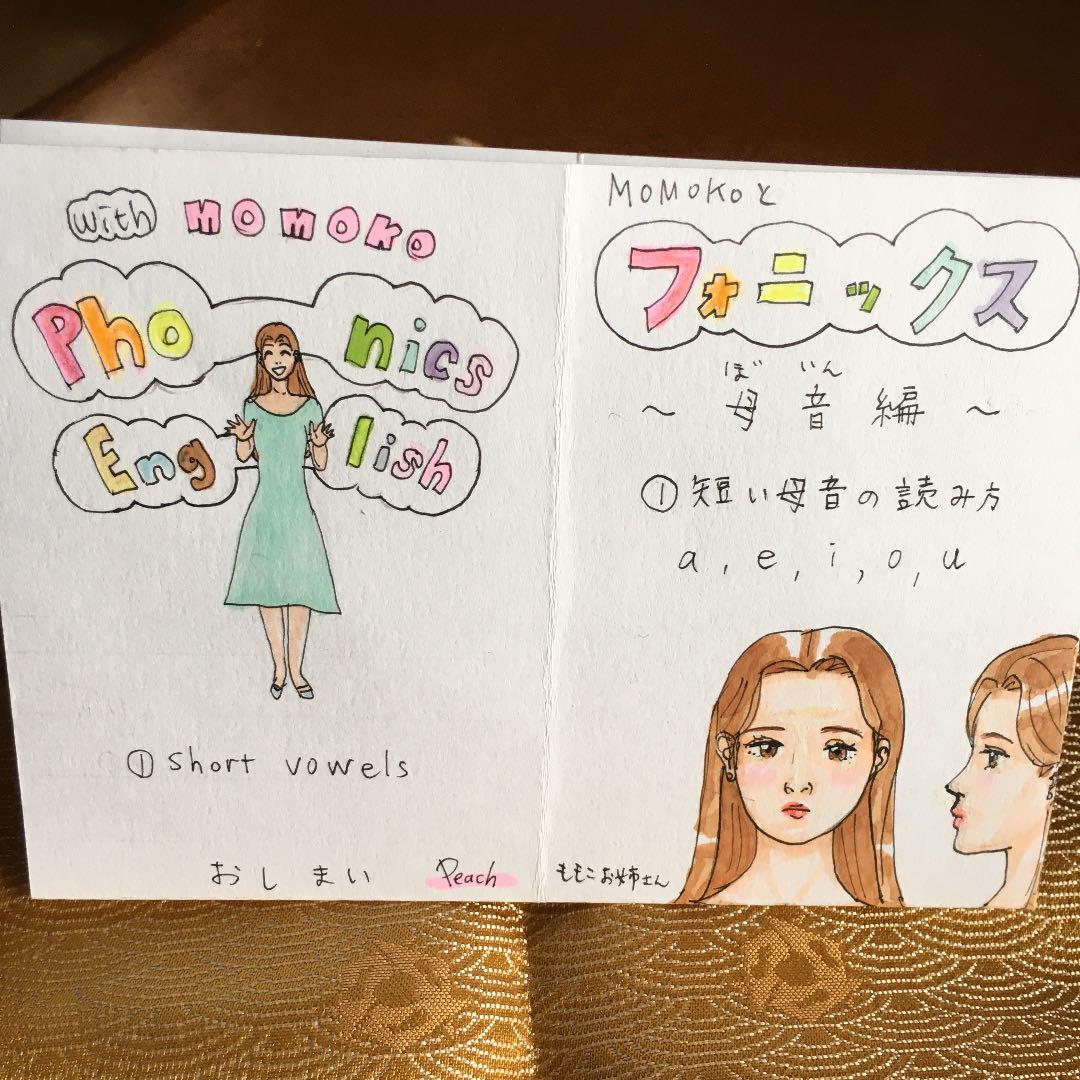 with MOMOKO
Phonics
English
① short vowels
おしまい
Peach
MOMOKOと
フォニックス
ぼいん
~ 母音編 ~
① 短い母音の読み方
a, e, i, o, u
ももこお姉さん